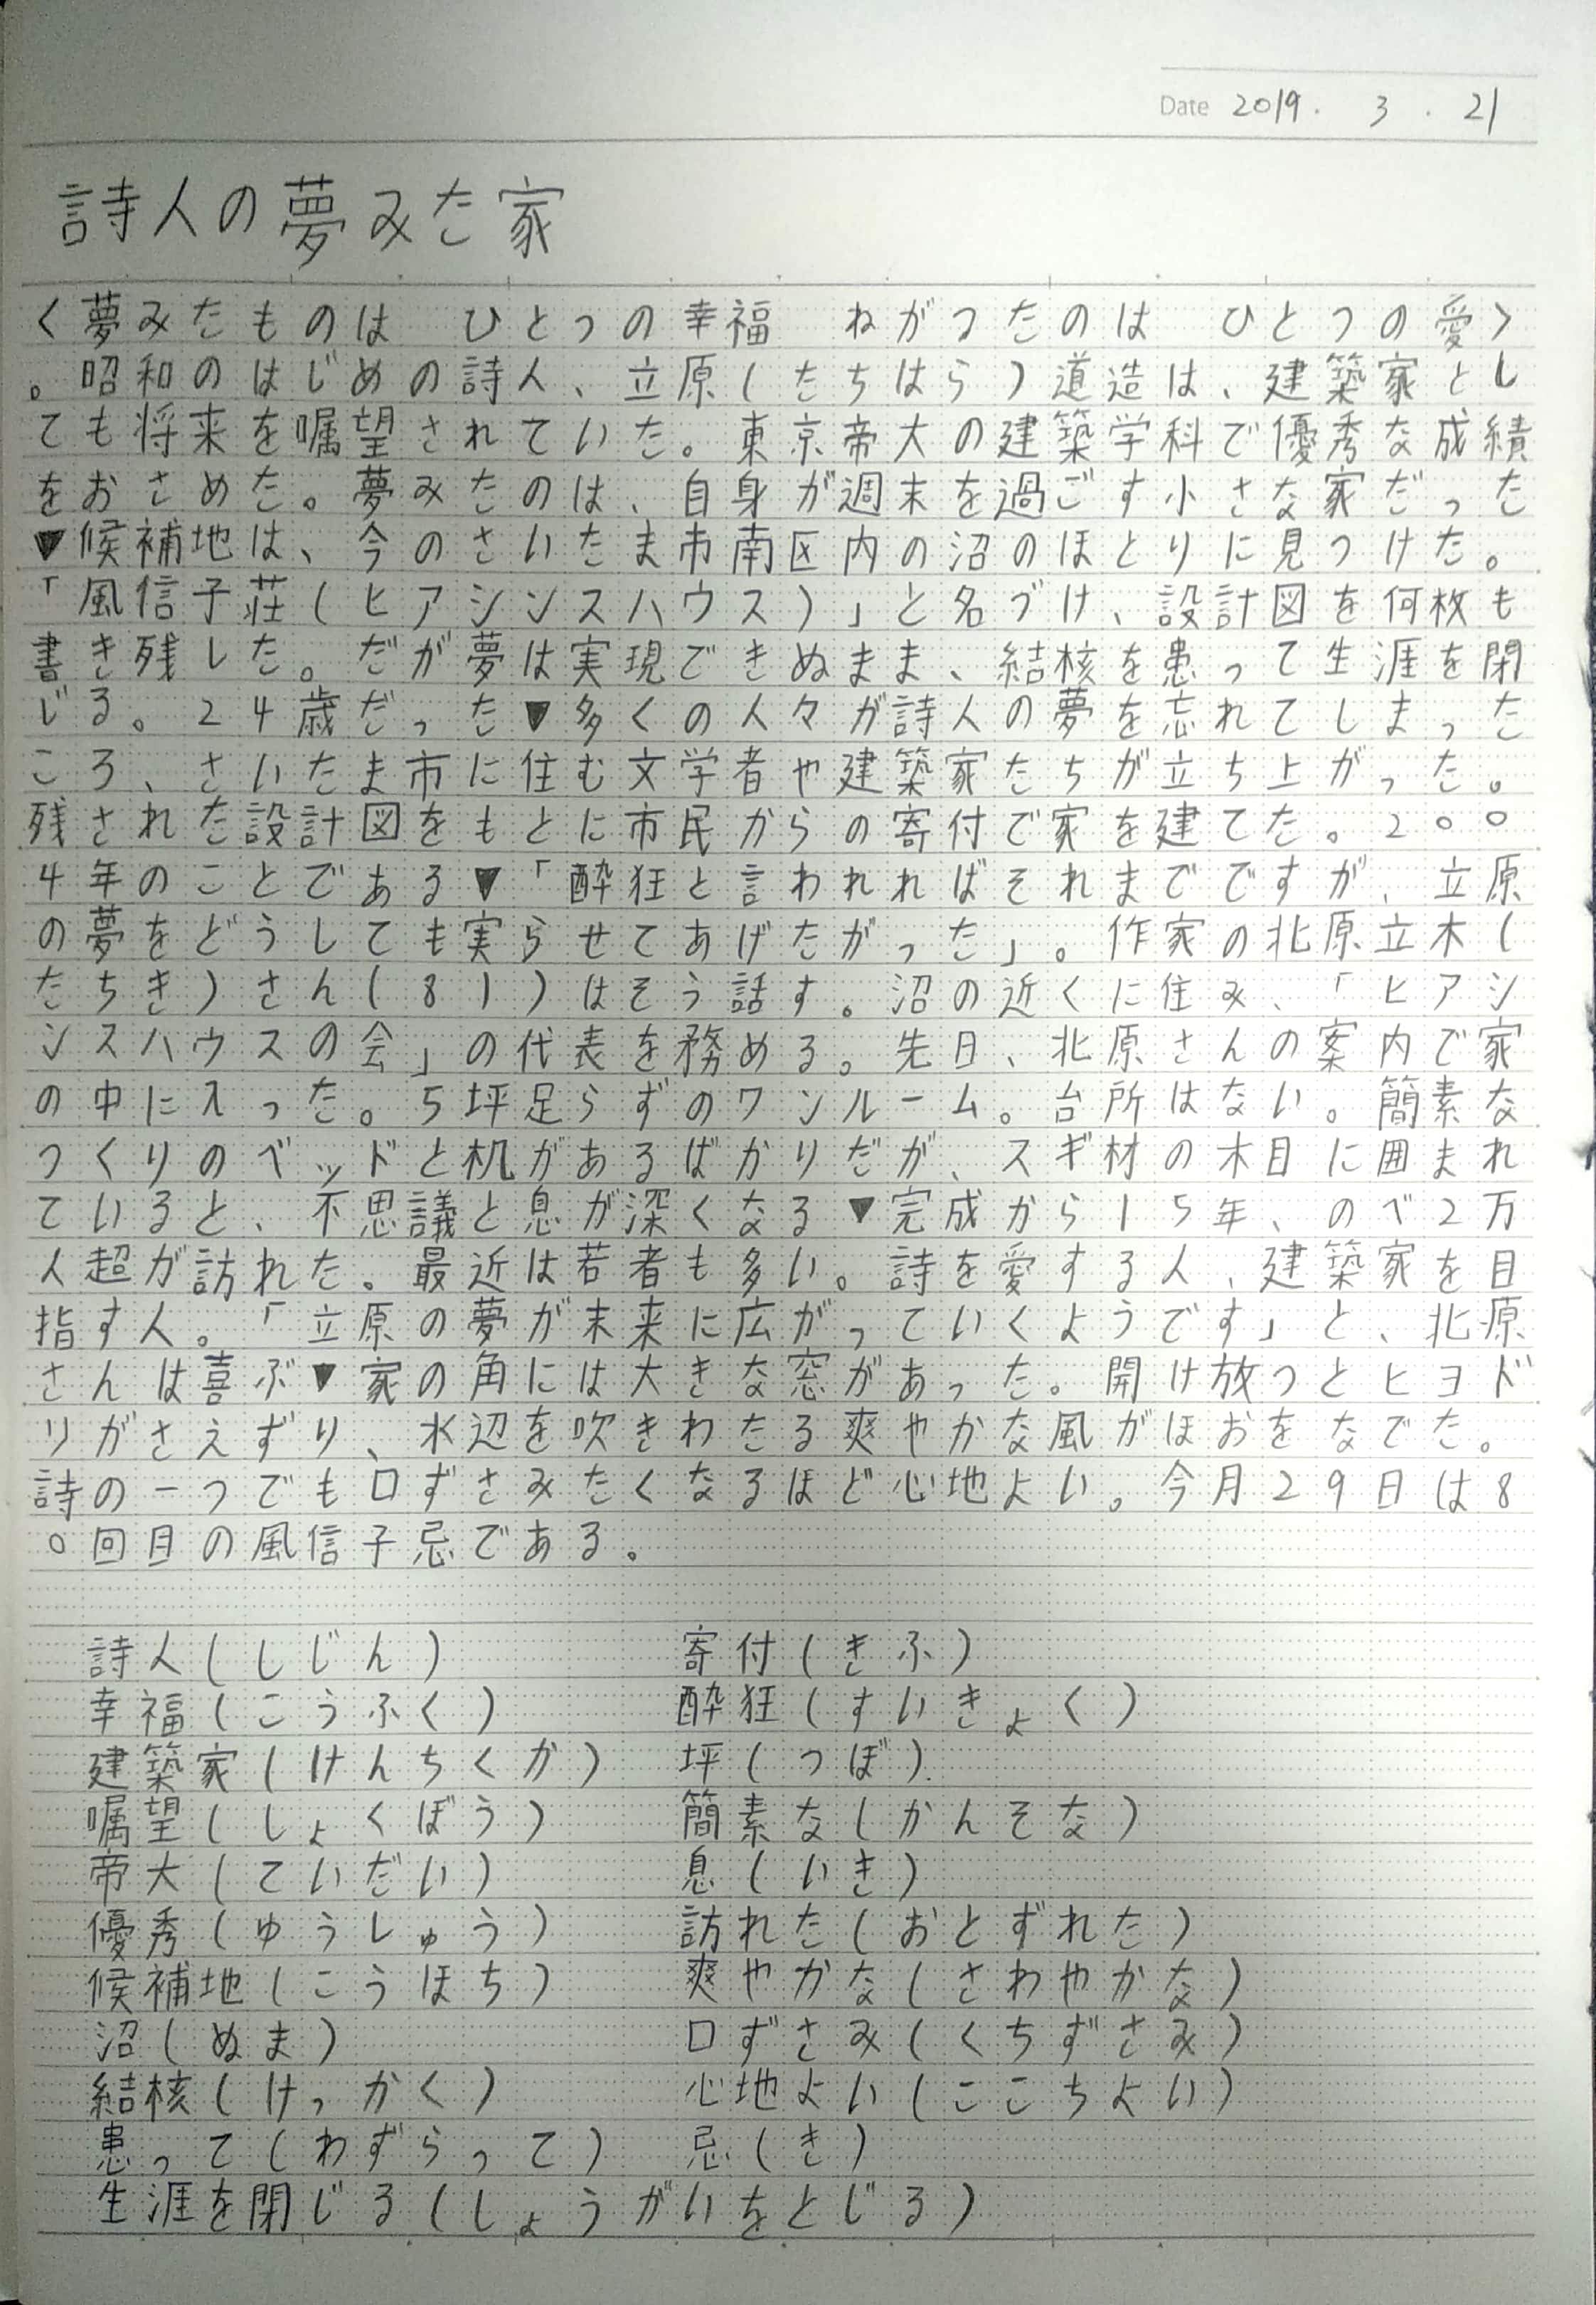 Date 2019. 3. 21
詩人の夢みた家
<夢みたものは ひとつの幸福 ねがつたのは ひとつの愛>
。昭和のはじめの詩人、立原(たちはら)道造は、建築家とし
ても将来を嘱望されていた。東京帝大の建築学科で優秀な成績
をおさめた。夢みたのは、自身が週末を過ごす小さな家だった
▼候補地は、今のさいたま市南区内の沼のほとりに見つけた。
「風信子荘(ヒアシンスハウス)」と名づけ、設計図を何枚も
書き残した。だが夢は実現できぬまま、結核を患って生涯を閉
じる。24歳だった▼多くの人々が詩人の夢を忘れてしまった
ころ、さいたま市に住む文学者や建築家たちが立ち上がった。
残された設計図をもとに市民からの寄付で家を建てた。200
4年のことである▼「酔狂と言われればそれまでですが、立原
の夢をどうしても実らせてあげたがった」。作家の北原立木(
たちき)さん(81)はそう話す。沼の近くに住み、「ヒアシ
ンスハウスの会」の代表を務める。先日、北原さんの案内で家
の中に入った。5坪足らずのワンルーム。台所はない。簡素な
つくりのベッドと机があるばかりだが、スギ材の木目に囲まれ
ていると、不思議と息が深くなる▼完成から15年、のべ2万
人超が訪れた。最近は若者も多い。詩を愛する人、建築家を目
指す人。「立原の夢が未来に広がっていくようです」と、北原
さんは喜ぶ▼家の角には大きな窓があった。開け放つとヒヨド
リがさえずり、水辺を吹きわたる爽やかな風がほおをなでた。
詩の一つでも口ずさみたくなるほど心地よい。今月29日は8
0回目の風信子忌である。
詩人(しじん)
幸福(こうふく)
建築家(けんちくか)
嘱望(しょくぼう)
帝大(ていだい)
優秀(ゆうしゅう)
候補地(こうほち)
沼(ぬま)
結核(けっかく)
患って(わずらって)
生涯を閉じる(しょうがいをとじる)
寄付(きふ)
酔狂(すいきょく)
坪(つぼ)
簡素な(かんそな)
息(いき)
訪れた(おとずれた)
爽やかな(さわやかな)
口ずさみ(くちずさみ)
心地よい(ここちよい)
忌(き)